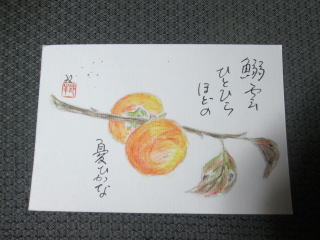 鰯雲
ひとひら
ほどの
憂ひかな